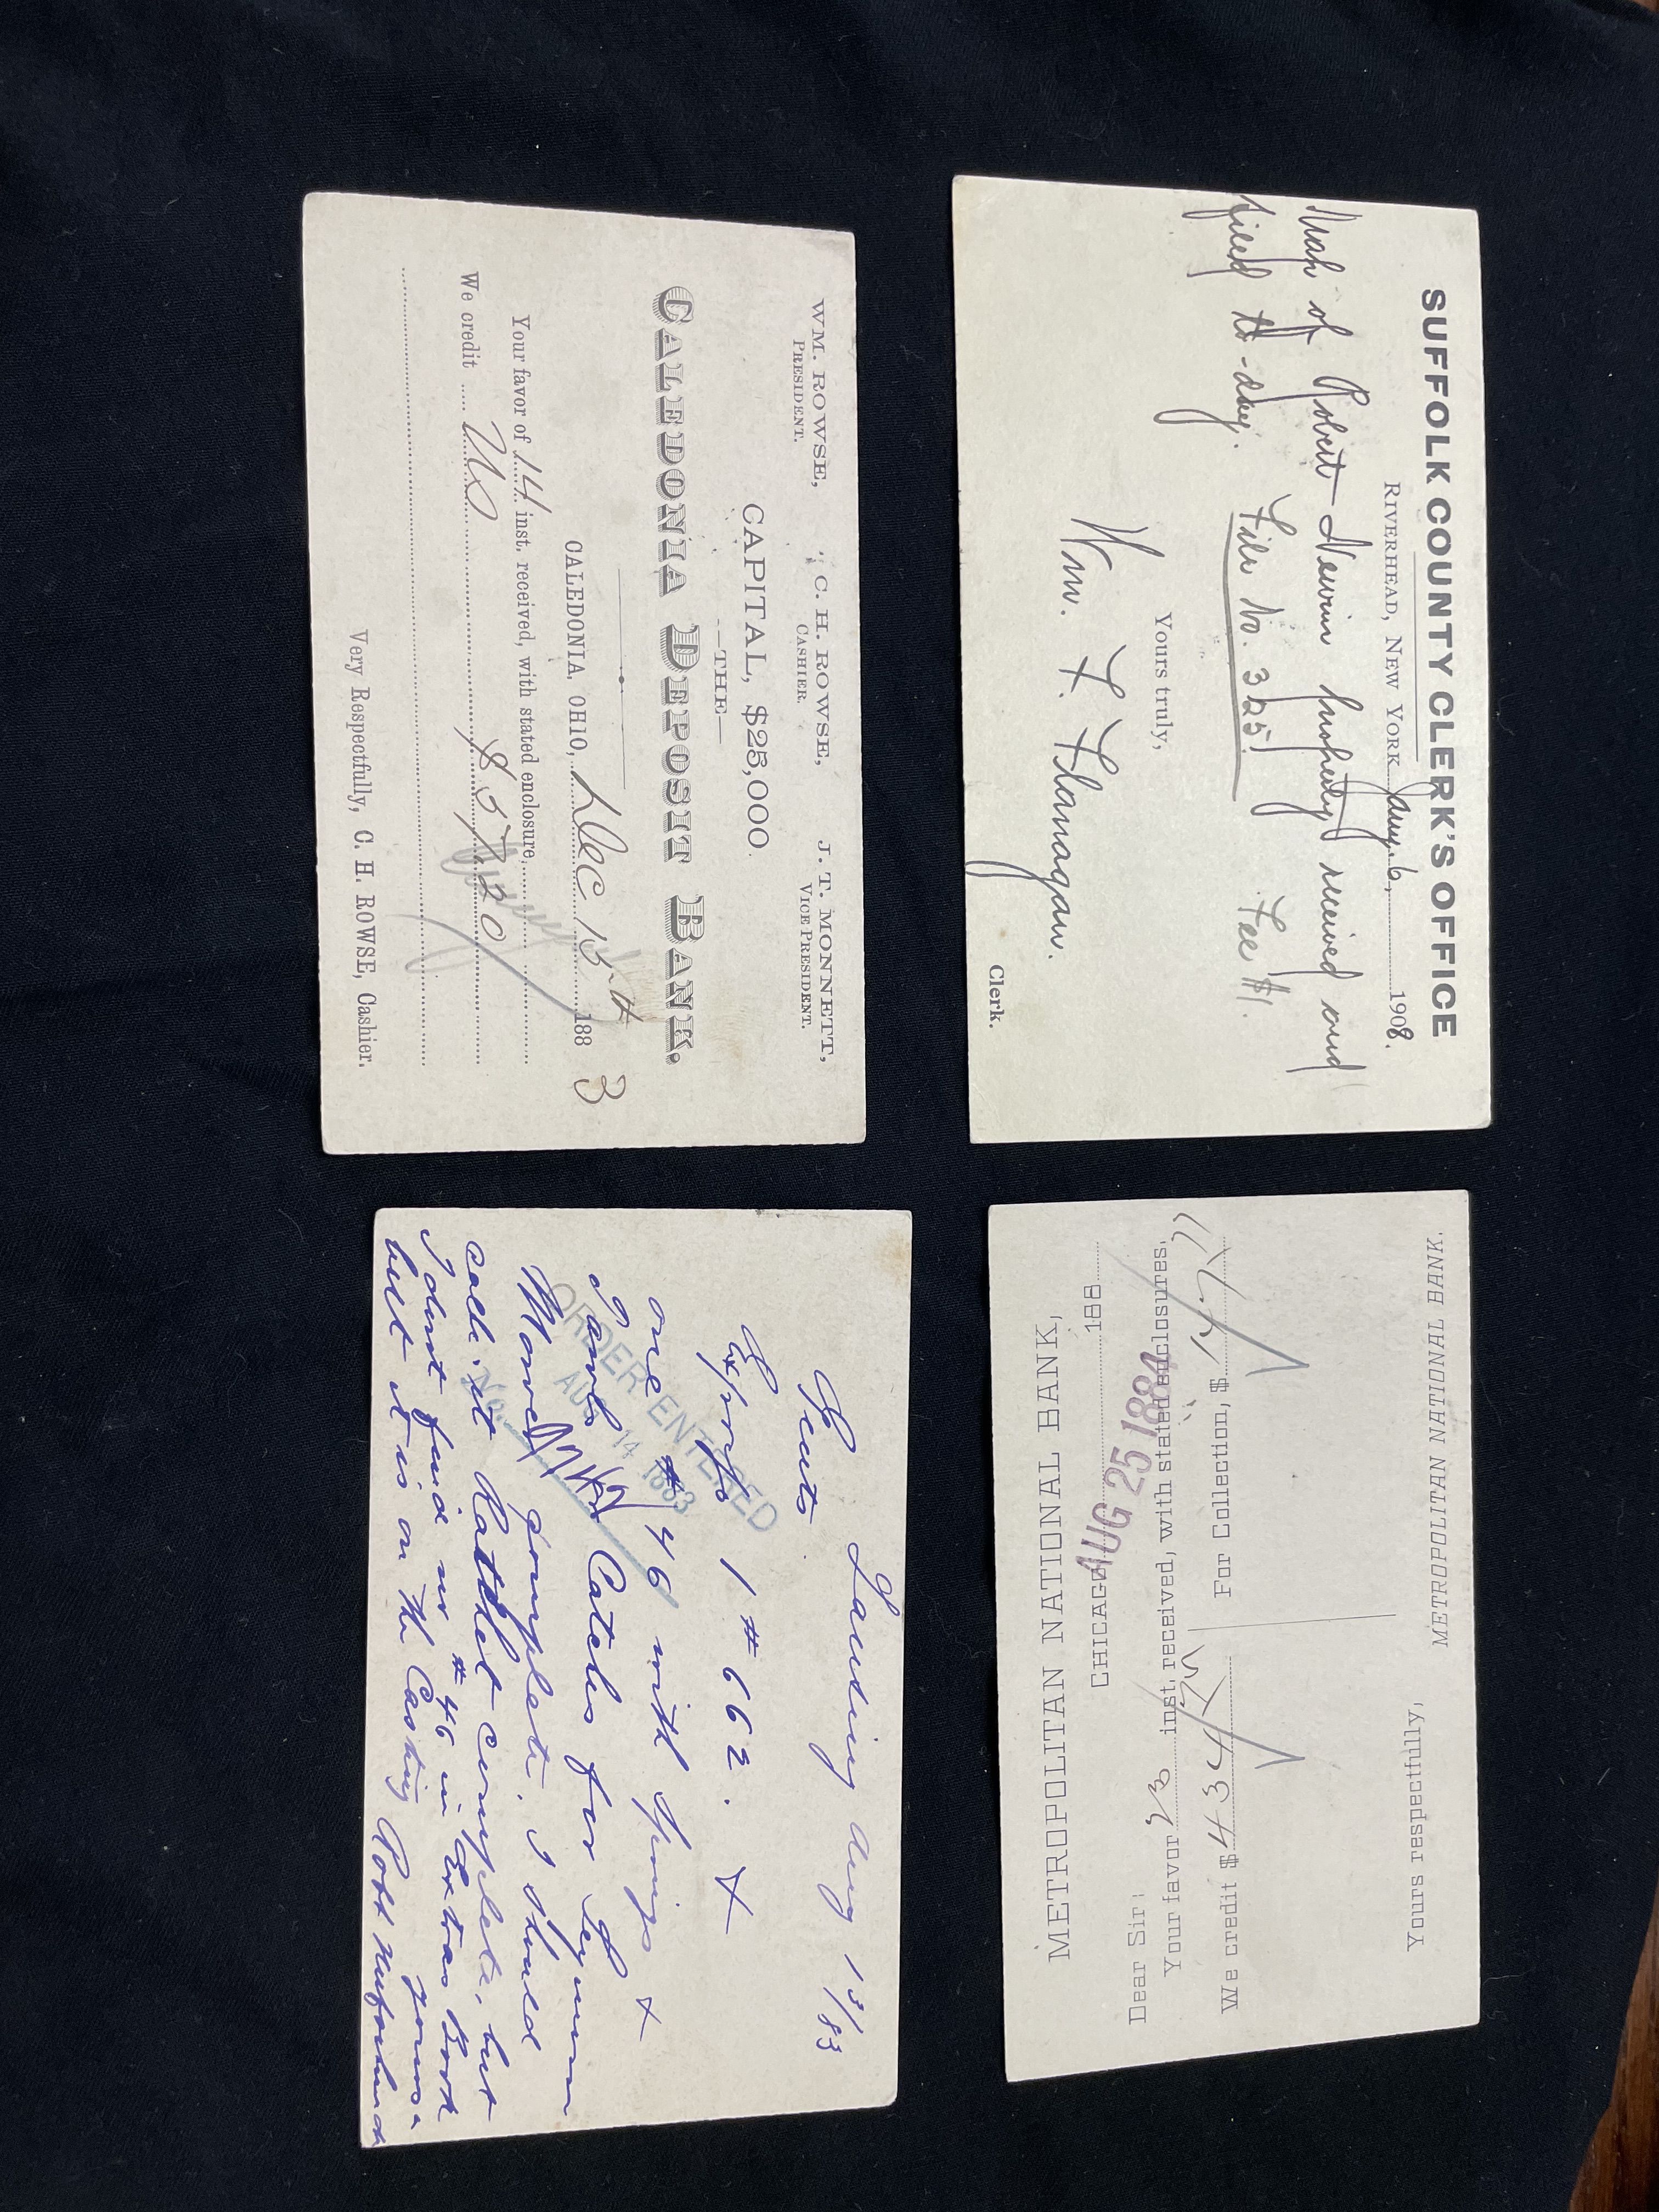 SUFFOLK COUNTY CLERK'S OFFICE
RIVERHEAD, NEW YORK Jany. 6, 1908.
Map of Robert Nevin property received and
filed to-day. File No. 325! Fee $1.
Yours truly,
Wm. F. Flanagan.
Clerk.
WM. ROWSE, C. H. ROWSE, J. T. MONNETT,
PRESIDENT. CASHIER. VICE PRESIDENT.
CAPITAL, $25,000.
—THE—
CALEDONIA DEPOSIT BANK.
CALEDONIA, OHIO, Dec 15th 1883
Your favor of 14 inst. received, with stated enclosure,
We credit us $57.20
Very Respectfully, C. H. ROWSE, Cashier.
METROPOLITAN NATIONAL BANK,
CHICAGO, 188
AUG 25 1884
Dear Sir:
Your favor 23 inst, received, with stated enclosures,
We credit $ 434 For Collection, $
Yours respectfully,
METROPOLITAN NATIONAL BANK.
Lansing Aug 13/83
Gents
1 # 662. X
one # 46 with Springs X
I and Catches for
complete. I should
call it Ratchet complete. but
I dont find no # 46 in Extras Book
but it is on the Casting yours
ORDER ENTERED
AUG 14 1883
No.